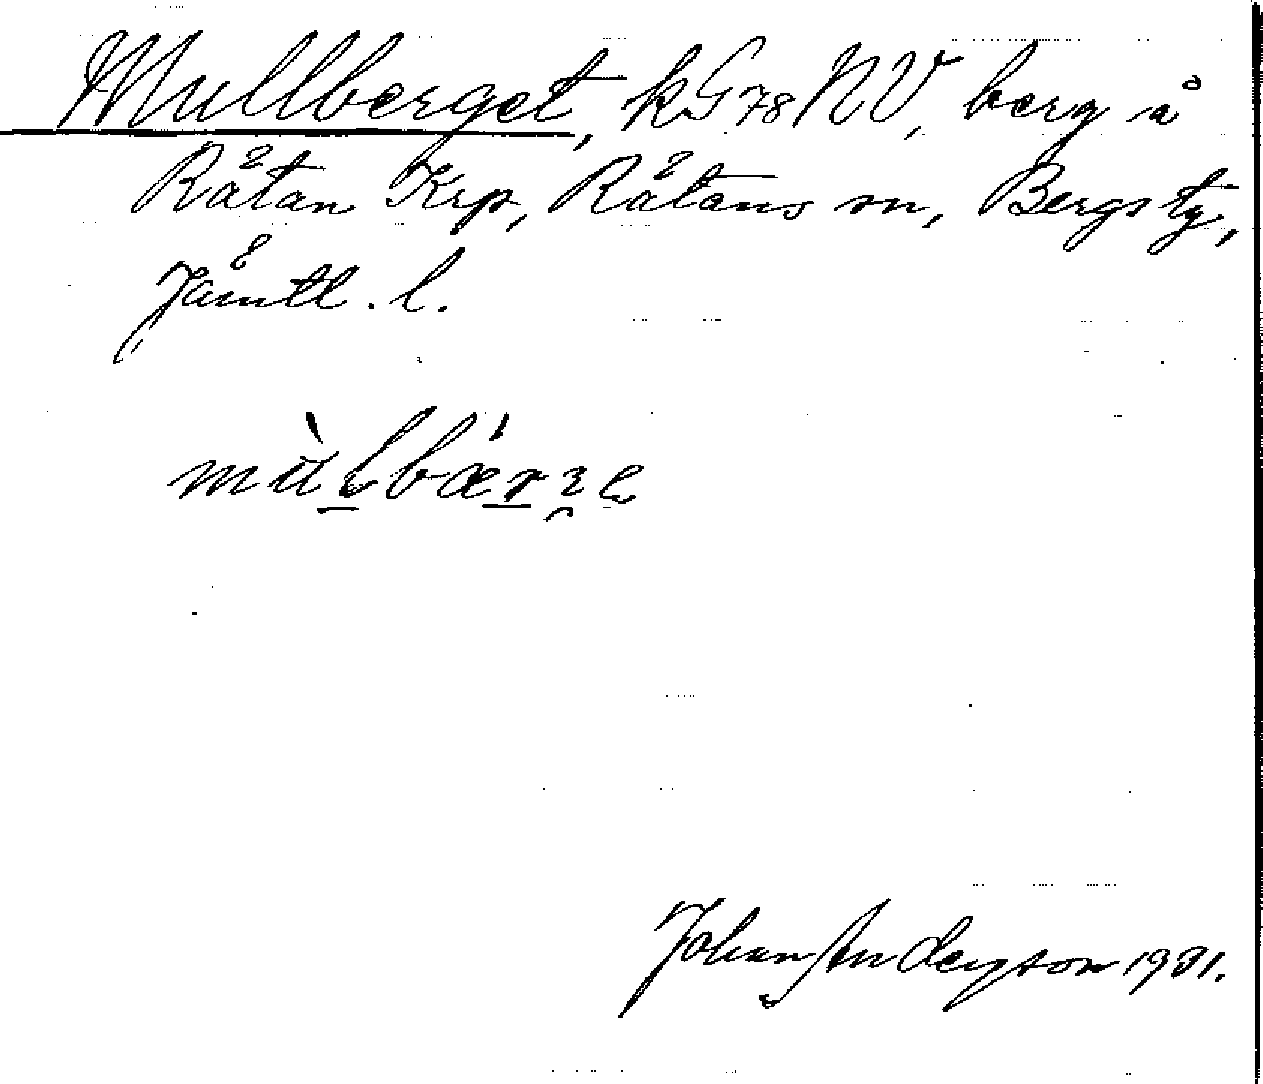 Mullberget, kG78NV, berg å
Råtan Krp, Råtans sn, Bergs tg,
Jämtl. l.
Johan Anderson 1931.